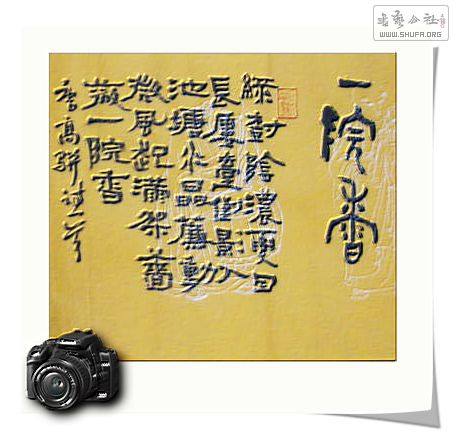 書藝公社
WWW.SHUFA.ORG
一院香
綠樹陰濃夏日
長樓臺倒影入
池塘水晶簾動
微風起滿架薔
薇一院香
唐高駢詩一首